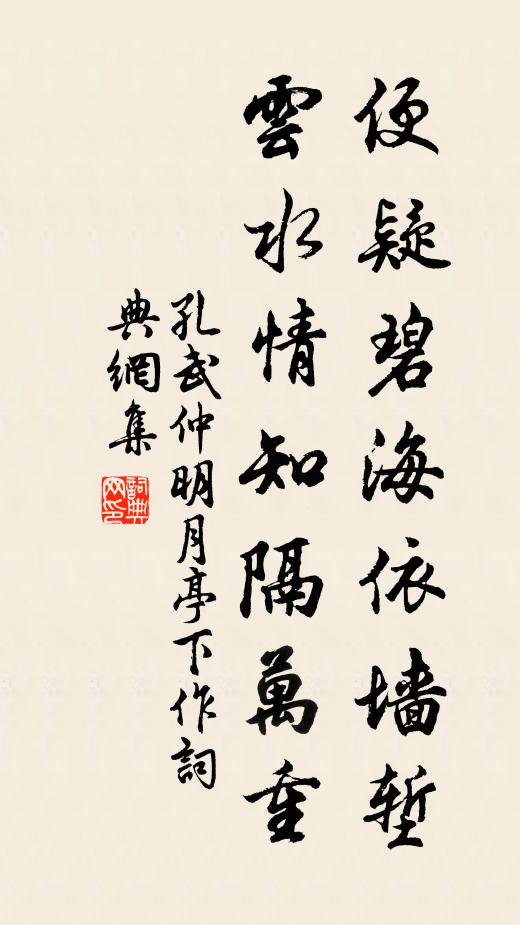 便疑碧海依墙塹
雲水情知隔萬重
孔武仲明月亭下作詞
典網集
詞典網印